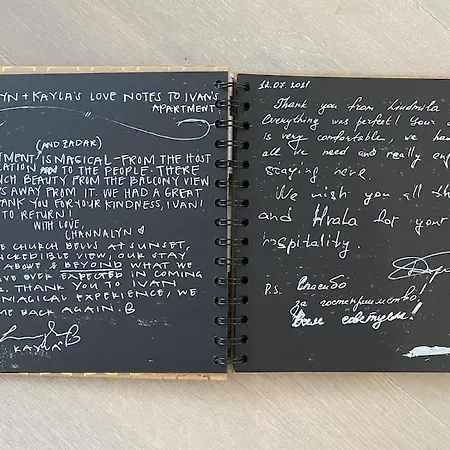 YN + KAYLA'S LOVE NOTES TO IVAN'S
APARTMENT
(AND ZADAR)
TMENT IS MAGICAL - FROM THE HOST
CATION TO THE PEOPLE. THERE
UCH BEAUTY FROM THE BALCONY VIEW
S AWAY FROM IT. WE HAD A GREAT
HANK YOU FOR YOUR KINDNESS, IVAN!
TO RETURN!
WITH LOVE,
CHANNALYN
E CHURCH BELLS AT SUNSET,
NCREDIBLE VIEW, OUR STAY
ABOVE & BEYOND WHAT WE
AVE EVER EXPECTED IN COMING
. THANK YOU TO IVAN
MAGICAL EXPERIENCE, WE
ME BACK AGAIN.
KAYLA
12.07.2021
Thank you from Liudmila
Everything was perfect! Your
is very comfortable, we ha
all we need and really en
staying here.
We wish you all th
and Hvala for your
hospitality.
P.S. Спасибо
за гостеприимство.
Вам советуем!